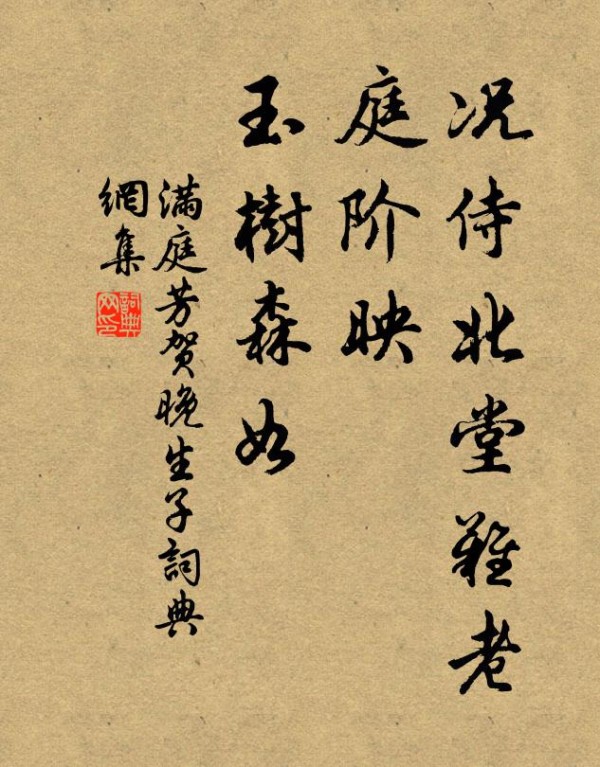 况侍北堂难老
庭阶映
玉樹森如
满庭芳贺晚生子詞典
網集
詞典
网印